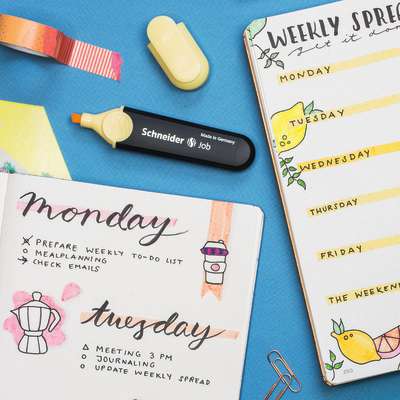 Schneider Job
Made in Germany
WEEKLY SPREA
get it don
MONDAY
TUESDAY
WEDNESDAY
THURSDAY
FRIDAY
THE WEEKEND
monday
PREPARE WEEKLY TO-DO LIST
MEALPLANNING
CHECK EMAILS
tuesday
MEETING 3 PM
JOURNALING
UPDATE WEEKLY SPREAD